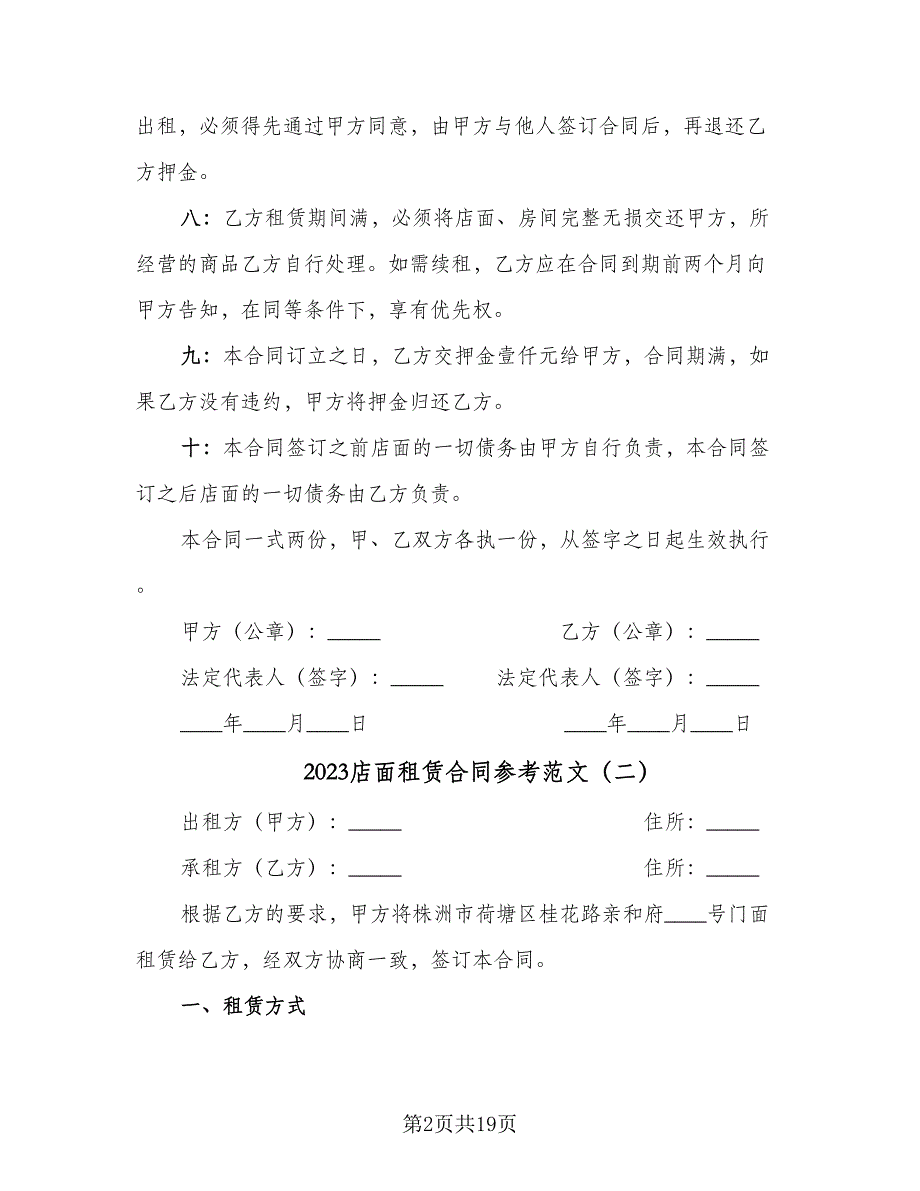 出租，必须得先通过甲方同意，由甲方与他人签订合同后，再退还乙
方押金。
八：乙方租赁期间满，必须将店面、房间完整无损交还甲方，所
经营的商品乙方自行处理。如需续租，乙方应在合同到期前两个月向
甲方告知，在同等条件下，享有优先权。
九：本合同订立之日，乙方交押金壹仟元给甲方，合同期满，如
果乙方没有违约，甲方将押金归还乙方。
十：本合同签订之前店面的一切债务由甲方自行负责，本合同签
订之后店面的一切债务由乙方负责。
本合同一式两份，甲、乙双方各执一份，从签字之日起生效执行
。
甲方（公章）：_____ 乙方（公章）：_____
法定代表人（签字）：_____ 法定代表人（签字）：_____
____年____月____日 ____年____月____日
2023店面租赁合同参考范文（二）
出租方（甲方）：_____ 住所：_____
承租方（乙方）：_____ 住所：_____
根据乙方的要求，甲方将株洲市荷塘区桂花路亲和府____号门面
租赁给乙方，经双方协商一致，签订本合同。
一、租赁方式
第2页共19页